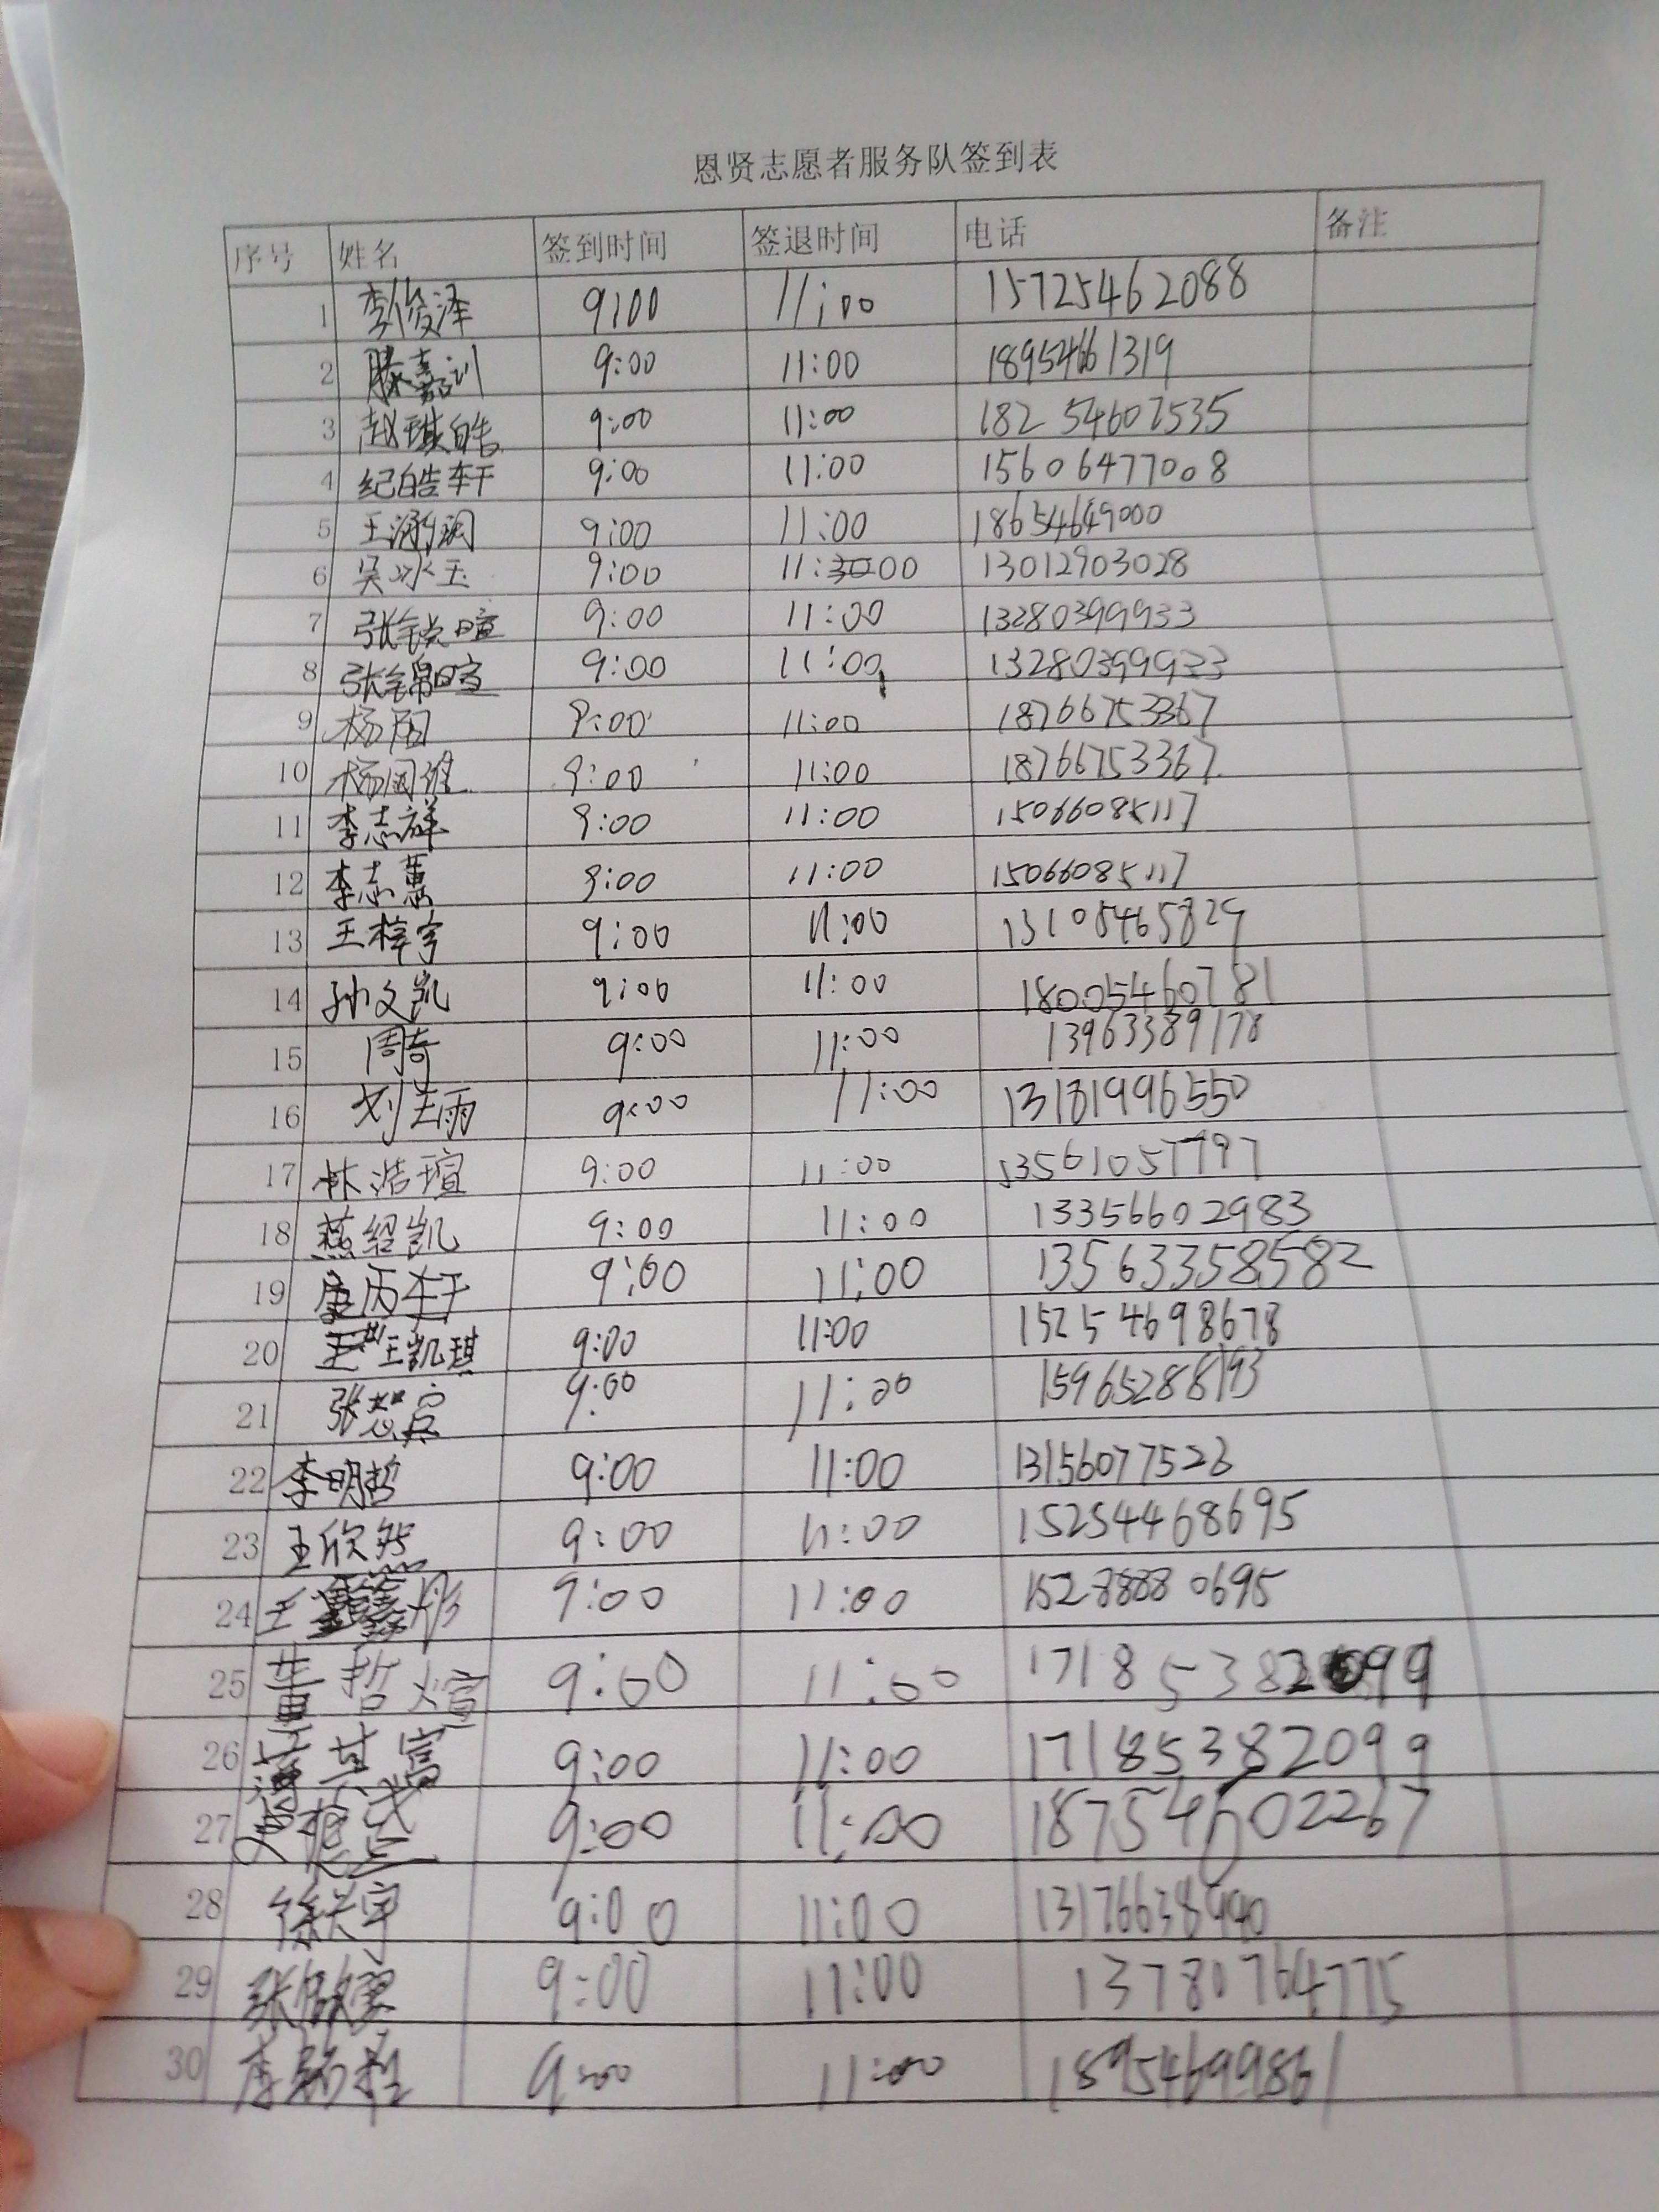 恩贤志愿者服务队签到表
序号 姓名 签到时间 签退时间 电话 备注
1 李俊泽 9:00 11:00 15725462088
2 滕嘉训 9:00 11:00 18954661319
3 赵琪皓 9:00 11:00 18254607535
4 纪皓轩 9:00 11:00 15606477008
5 王 9:00 11:00 18654649000
6 吴冰玉 9:00 11:00 13012903028
7 张锐暄 9:00 11:00 13280399933
8 张锦暄 9:00 11:00 13280399933
9 杨阳 9:00 11:00 18766753367
10 杨国维 9:00 11:00 18766753367
11 李志祥 9:00 11:00 15066085117
12 李志蕙 9:00 11:00 15066085117
13 王梓宇 9:00 11:00 13105465829
14 孙文凯 9:00 11:00 18005460781
15 周奇 9:00 11:00 13963389178
16 刘芸雨 9:00 11:00 13181996550
17 林浩瑄 9:00 11:00 13561057797
18 燕绍凯 9:00 11:00 13356602983
19 唐丙轩 9:00 11:00 13563358582
20 王凯琪 9:00 11:00 15254698678
21 张慧宾 9:00 11:00 15965288193
22 李明哲 9:00 11:00 13156077526
23 王欣然 9:00 11:00 15254468695
24 王鑫彤 9:00 11:00 15288880695
25 董哲煊 9:00 11:00 17185382099
26 9:00 11:00 17185382099
27 9:00 11:00 18754602267
28 徐兴宇 9:00 11:00 13176638990
29 张 9:00 11:00 13780764775
30 李 9:00 11:00 18954699861